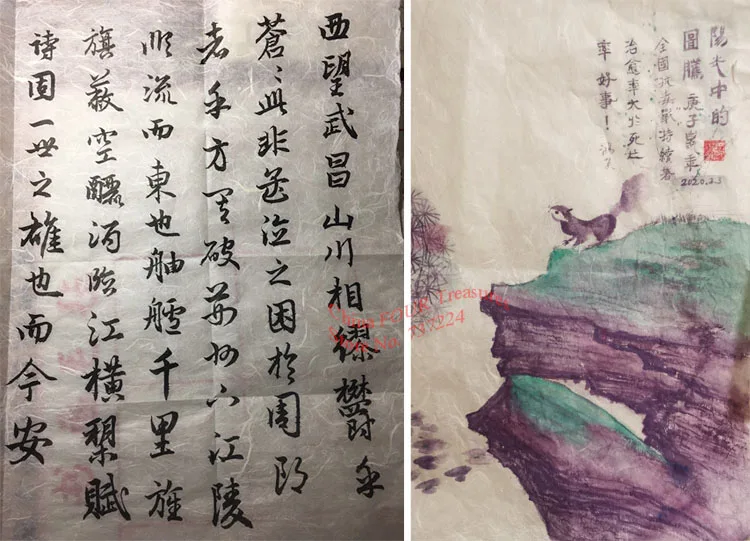 西望武昌山川相繆欝乎
蒼〻此非孟德之困於周郎
者乎方其破荊州下江陵
順流而東也舳艫千里旌
旗蔽空釃酒臨江橫槊賦
詩固一世之雄也而今安
陽光中的
圖騰 庚子鼠年 2020.2.3
全國病毒
治愈率大於死亡
率好事！
China FOUR Treasures
Store No: